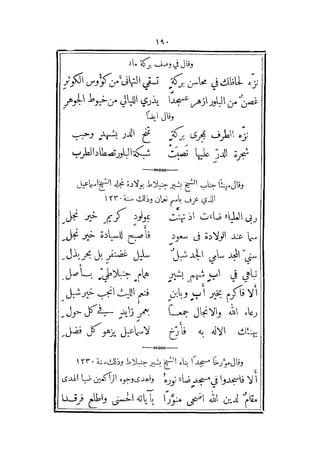 ١٩٠
وقال في وصف بركة ماء
نزّه لحاظك في محاسن بركة تسقي التهاني من كؤوس الكوثر
غصنٌ من البلور ازهر عسجداً يذري اللآلي من خيوط الجوهر
وقال ايضاً
نزّه الطرف بمجرى بركة تمنح الدر بشهدٍ وحبب
شجرة الدرّ عليها نصبت شبكة البلور تصطاد الطرب
وقال مهنئاً جناب الشيخ بشير جنبلاط بولادة نجله الشيخ اسماعيل
الذي عرف باسم نعمان وذلك سنة ١٢٣٠
ربى العلياء ضاءت اذ تهنّت بمولودٍ كريمٍ خير نجل
سما عند الولادة في سعود فأصبح للسيادة خير نجل
سنيّ المجد سامي الجد شبل سليل غضنفر بل بحر بذل
تباهي في ابٍ شهمٍ بشير همام جنبلاطيّ بأصل
ألا فاكرم بخير أبٍ وبابن فنعم الليث انجب خير شبل
رعاه الله والانجال جمعاً بعمر زايد في كل حول
يهنئك الاله به فأرّخ لاسماعيل يزهو كل فضل
وقال مؤرخاً مسجداً بناه الشيخ بشير جنبلاط وذلك سنة ١٢٣٠
ألا فاسجدوا في مسجدٍ ضاء نوره واهدى وجوه الراكعين ضيا الهدى
مقام لدين الله اضحى منوّرا بآياته الحسنى واطلع فرقدا